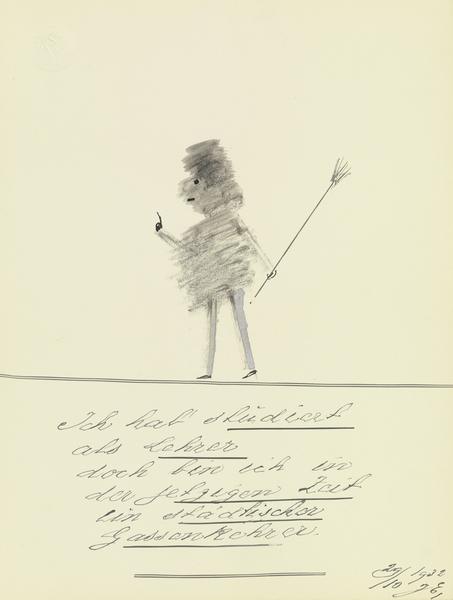 Ich hab' studiert
als Lehrer
doch bin ich in
der jetzigen Zeit
ein städtischer
Gassenkehrer.